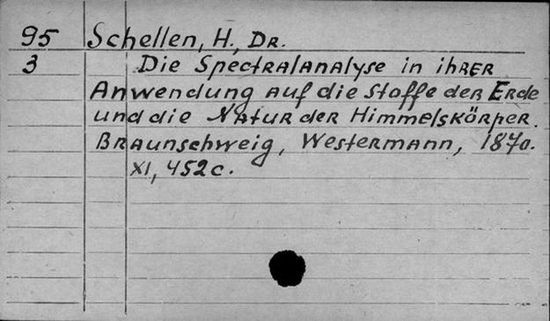 95 Schellen, H., Dr.
3 Die Spectralanalyse in ihrer
Anwendung auf die Stoffe der Erde
und die Natur der Himmelskörper.
Braunschweig, Westermann, 1870.
XI, 452 c.